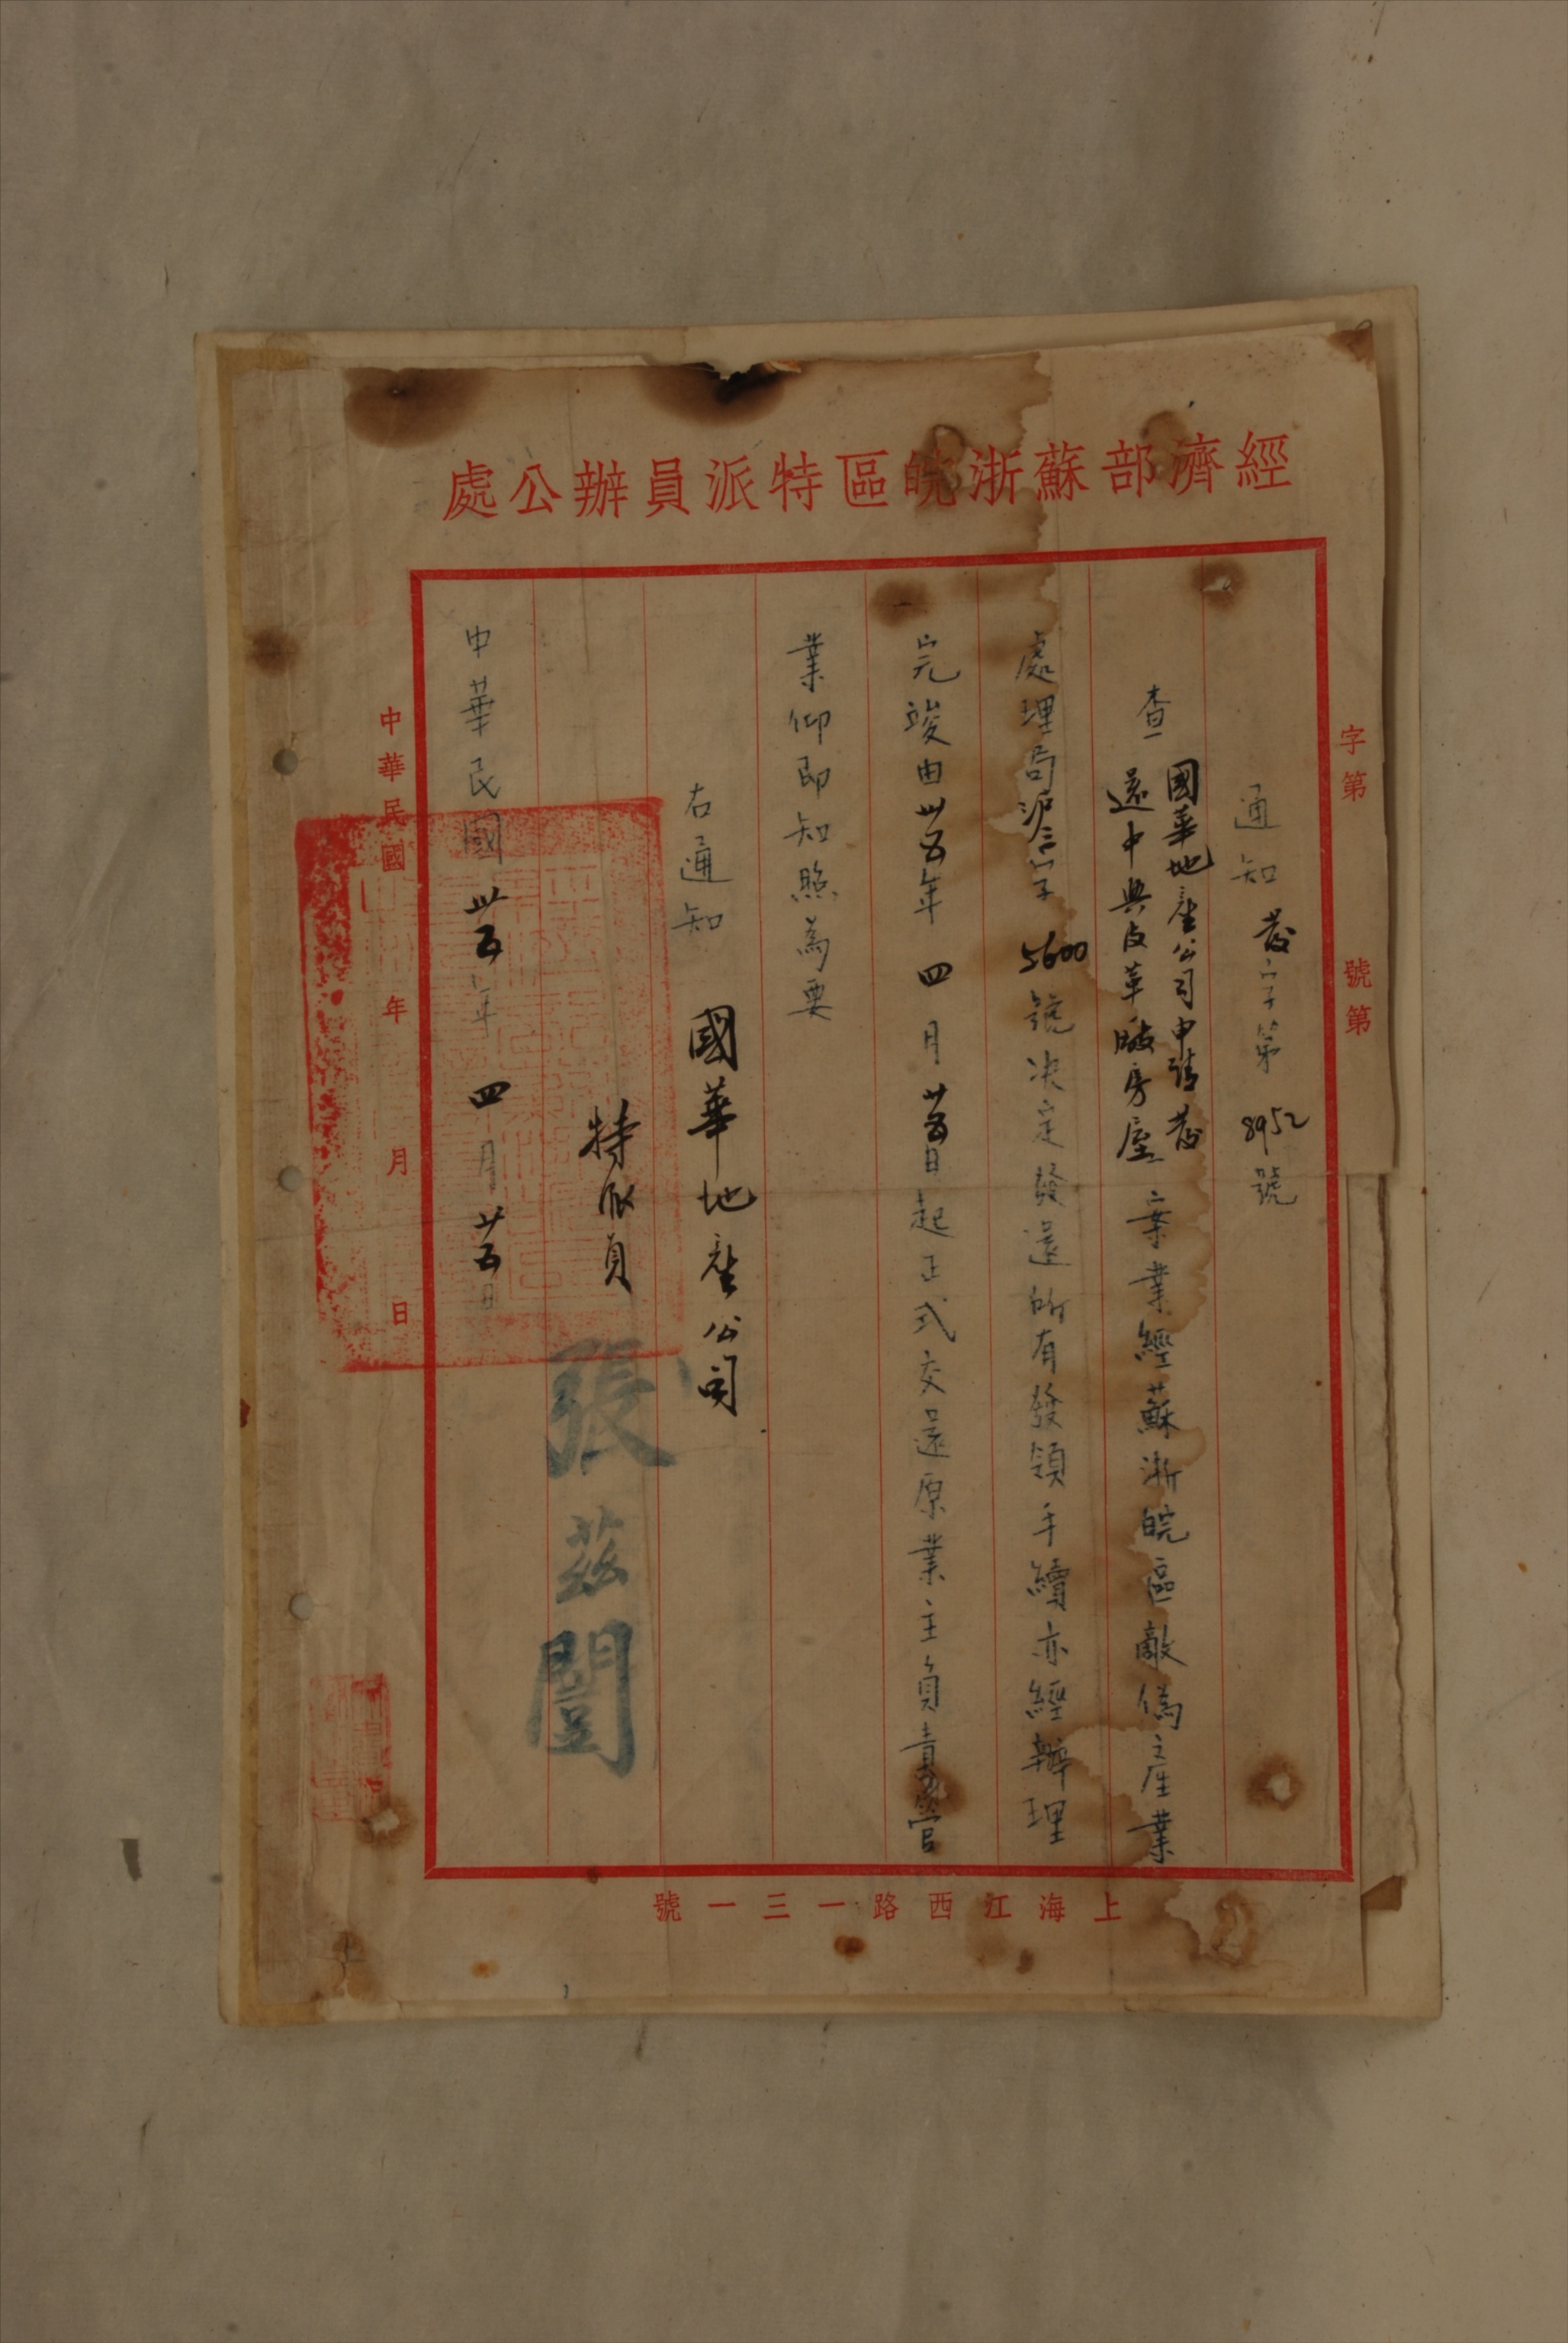 經濟部蘇浙皖區特派員辦公處
字第　號第
通知　發字第 8952 號
查國華地產公司申請發
還中興皮革廠房屋一案業經蘇浙皖區敵偽產業
處理局滬三字 5600 號決定發還所有發領手續亦經辦理
完竣由卅五年四月廿五日起正式交還原業主負責營
業仰即知照為要
右通知　國華地產公司
特派員　張茲闓
中華民國卅五年四月廿五日
中華民國　年　月　日
上海江西路一三一號